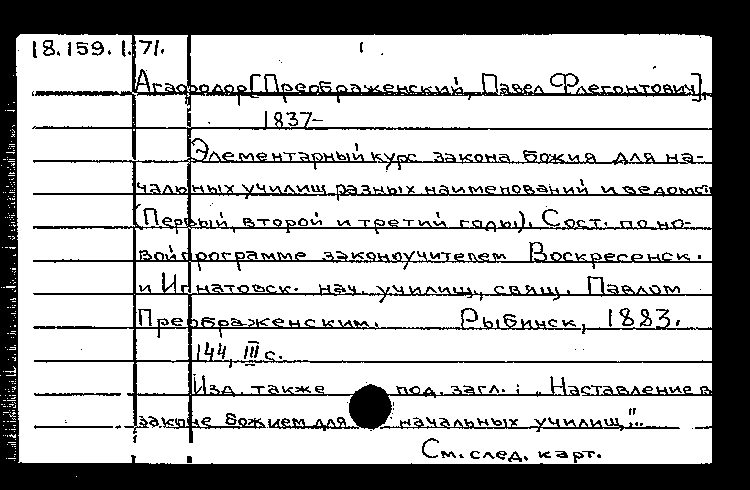 18.159.1.71. 1
Агафодор[Преображенский, Павел Флегонтович],
1837-
Элементарный курс закона божия для на-
чальных училищ разных наименований и ведомст
(Первый, второй и третий годы). Сост. по но-
вой программе законоучителем Воскресенск.
и Игнатовск. нач. училищ, свящ. Павлом
Преображенским. Рыбинск, 1883.
144, III с.
Изд. также под. загл.: "Наставление в
законе божием для начальных училищ"..
См. след. карт.